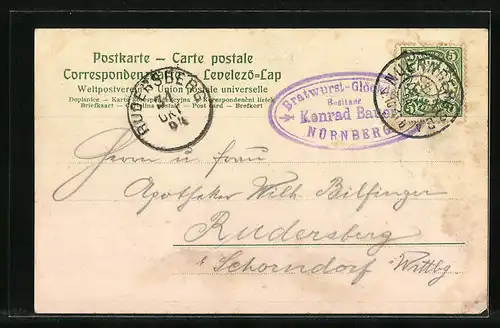 Postkarte – Carte postale
Correspondenz Levelező-Lap
Weltpostverein Union postale universelle
Dopisnice – Karta korespondencyjna – Korespondenční lístek
Briefkaart – Cartolina postale – Post card – Brefkort
RUDERSBERG
OKT
Bratwurst-Glöck
Besitzer
Konrad Bauer
NÜRNBERG
5
Herrn u frau
Apotheker Wilh. Bilfinger
Rudersberg
Schorndorf Wrttbg